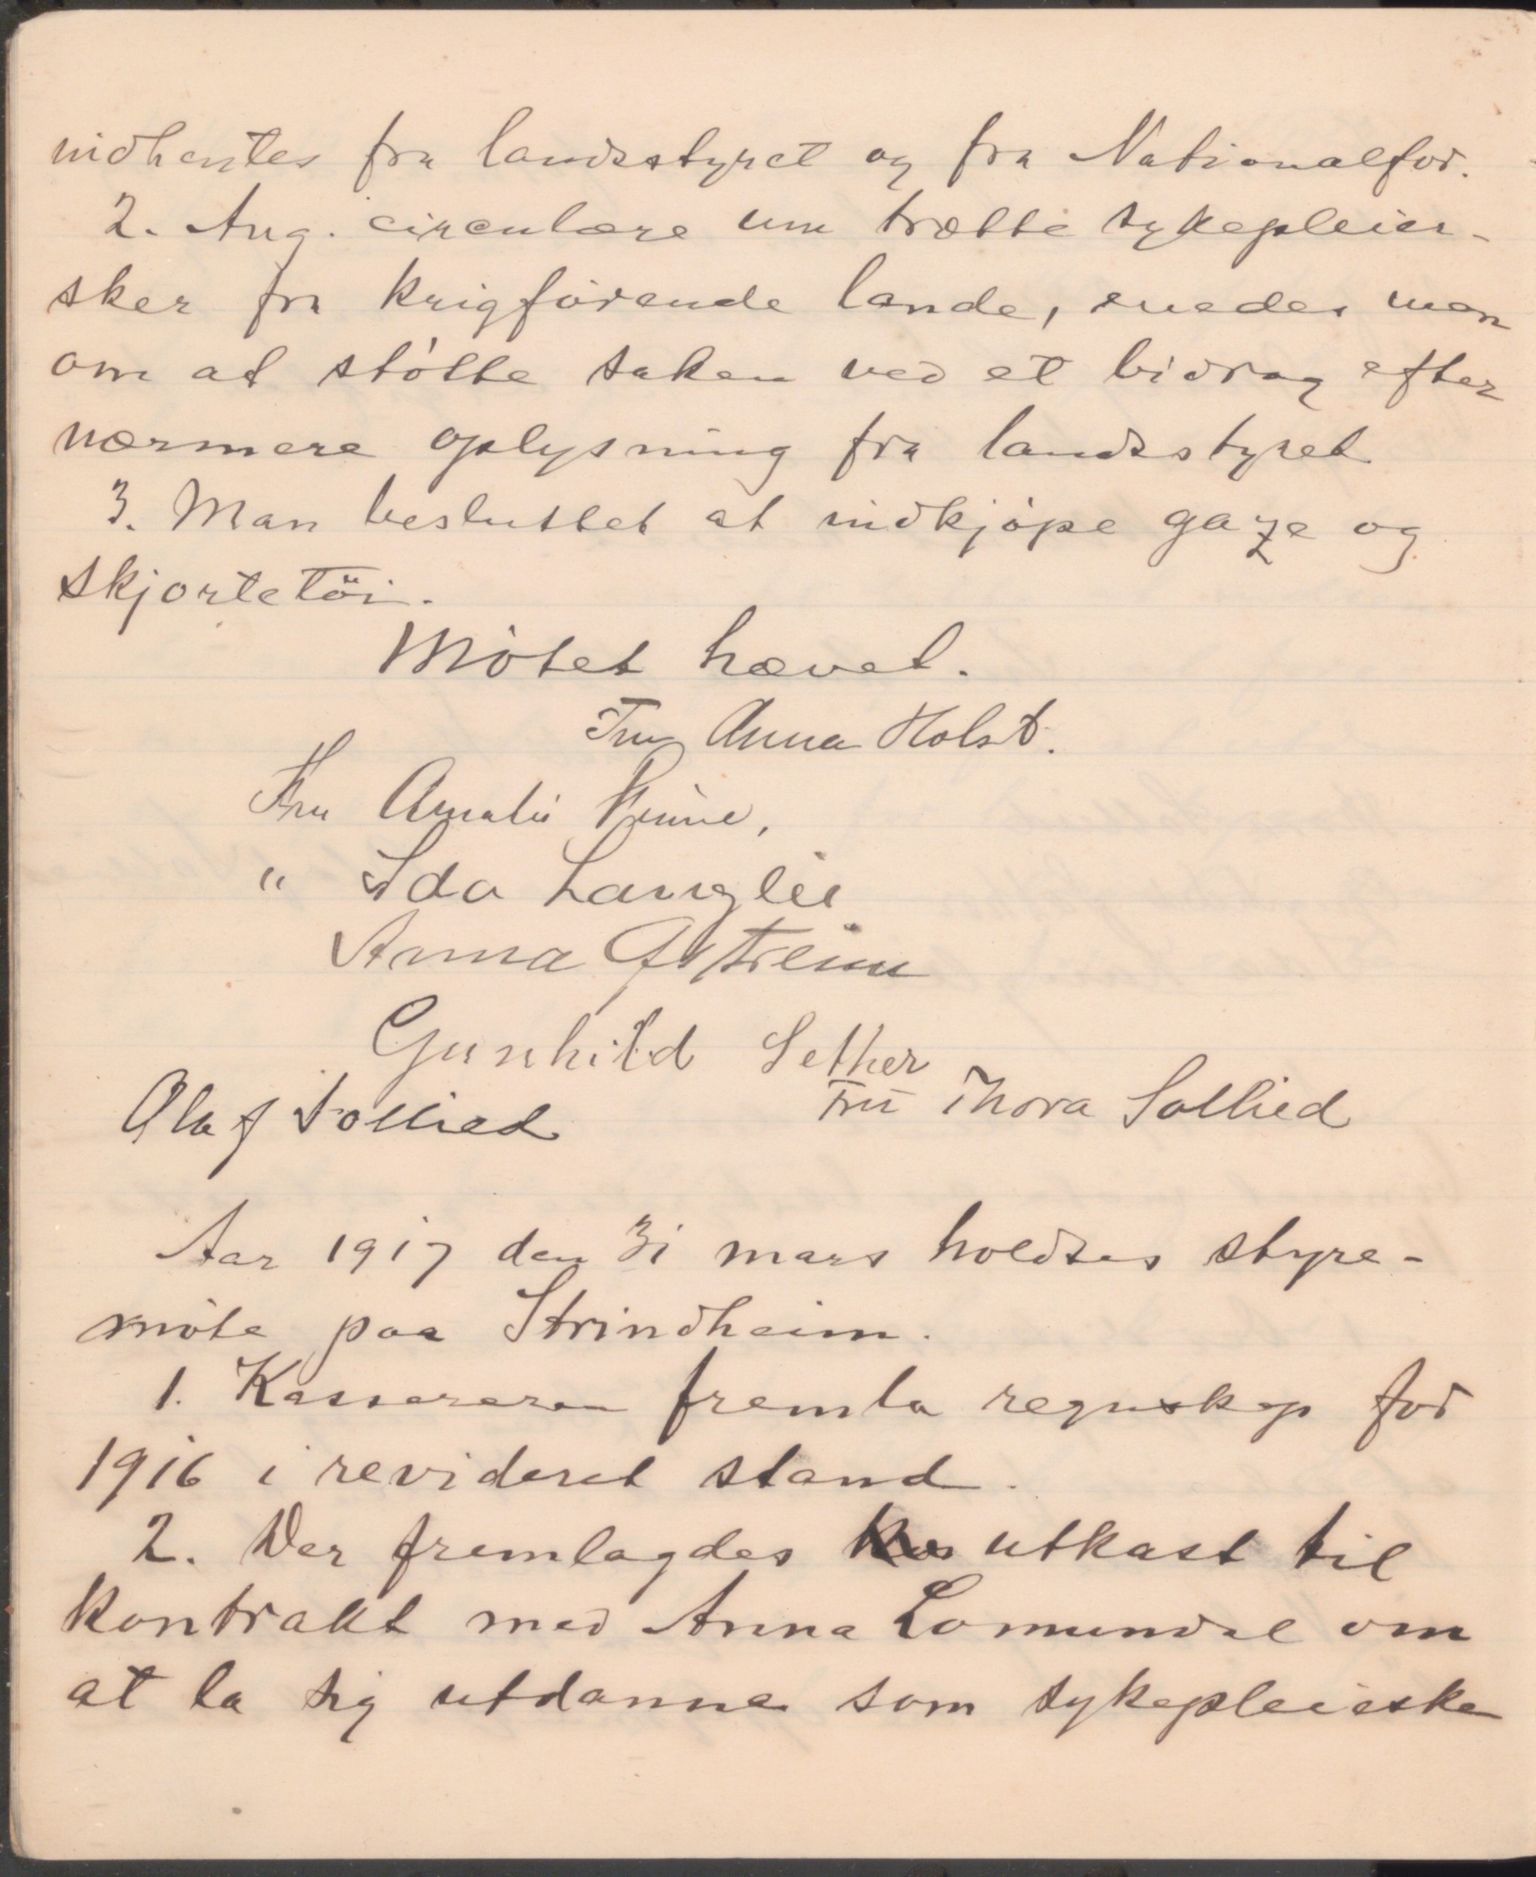 indhentes fra landsstyret og fra Nationalfor.
2. Ang. circulære um trætte sykepleier-
sker fra krigførende lande, enedes man
om at støtte saken ved et bidrag efter
nærmere oplysning fra landsstyret
3. Man besluttet at indkjøpe gaze og
skjortetöi.
Møtet hævet.
Fru Anna Holst.
Fru Amalie
" Ida Langlie
Anna
Gunhild Sether
Fru Thora Sollied
Olaf Sollied
Aar 1917 den 31 mars holdtes styre-
møte paa Strindheim.
1. Kassereren fremla regnskap for
1916 i revideret stand.
2. Der fremlagdes utkast til
kontrakt med Anna Lomundal om
at la sig utdanne som sykepleieske